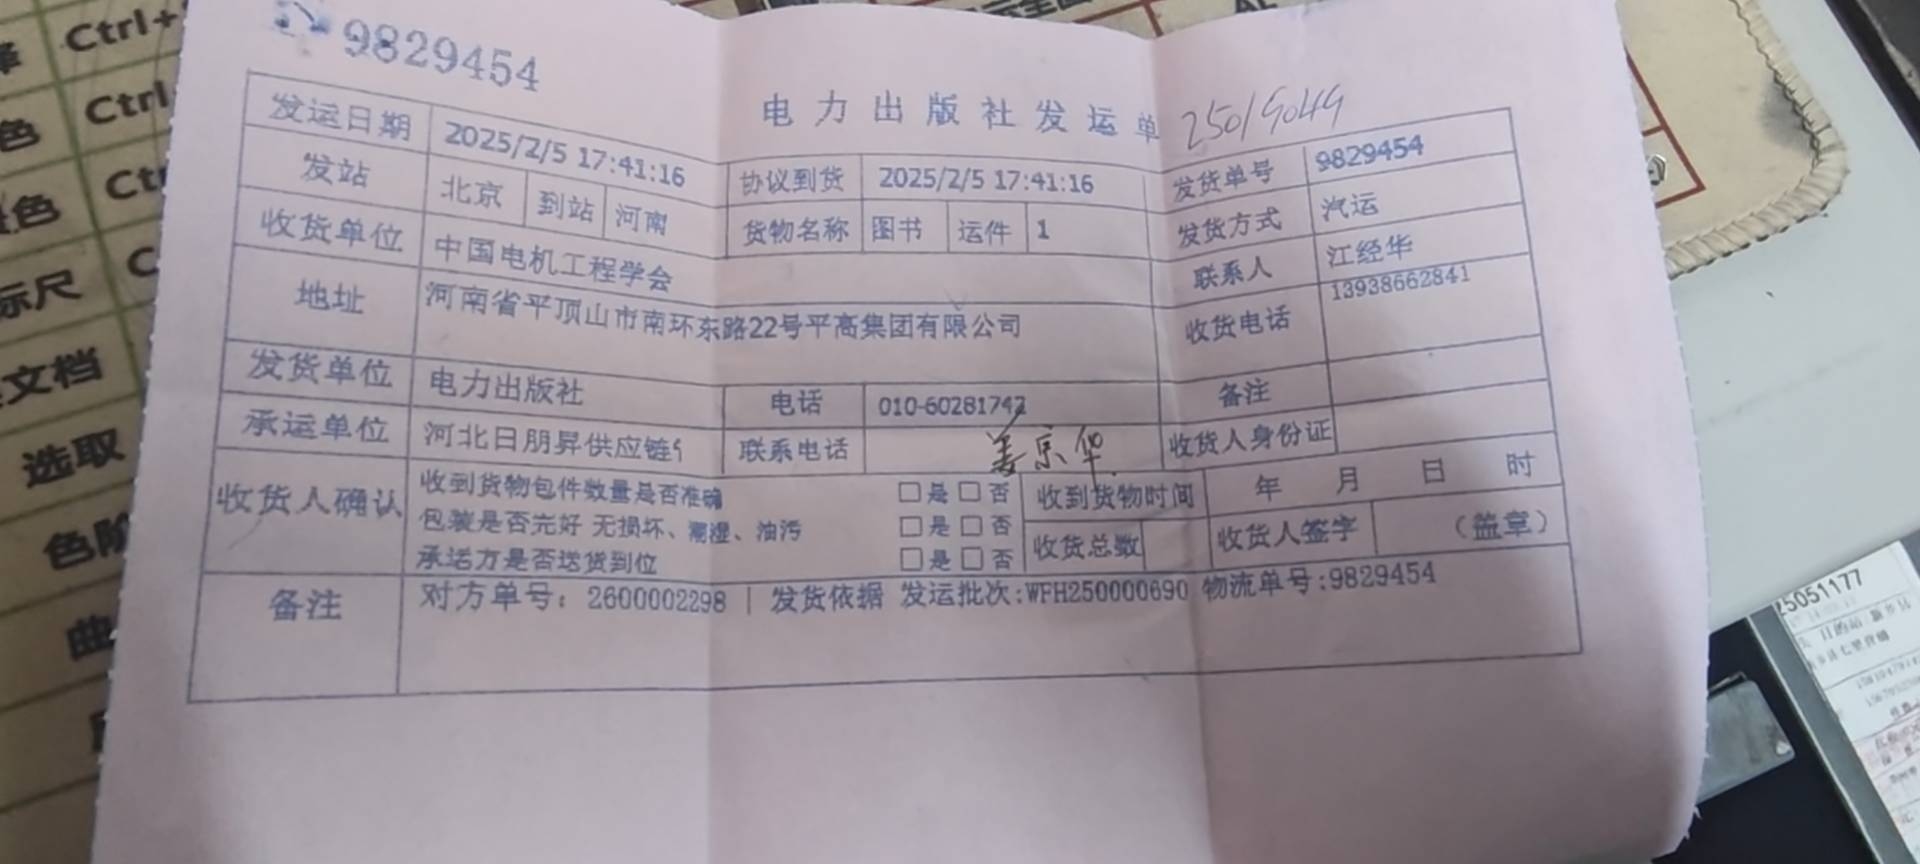 9829454
电力出版社发运单 25019049
发运日期 2025/2/5 17:41:16 协议到货 2025/2/5 17:41:16 发货单号 9829454
发站 北京 到站 河南 货物名称 图书 运件 1 发货方式 汽运
收货单位 中国电机工程学会 联系人 江经华
地址 河南省平顶山市南环东路22号平高集团有限公司 收货电话 13938662841
发货单位 电力出版社 电话 010-60281742 备注
承运单位 河北日朋昇供应链 联系电话 收货人身份证
收货人确认 收到货物包件数量是否准确 □是 □否 收到货物时间 年 月 日 时
包装是否完好 无损坏、潮湿、油污 □是 □否
承送方是否送货到位 □是 □否 收货总数 收货人签字 (盖章)
备注 对方单号: 2600002298 | 发货依据 发运批次:WFH250000690 物流单号:9829454
Ctrl+
Ctrl
色
标尺
文档
选取
色阶
曲
25051177